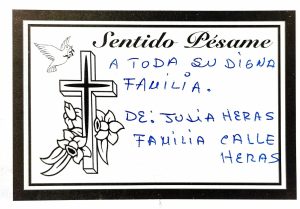 Sentido Pésame
A TODA SU DIGNA
FAMILIA.
DE: JUSIA HERAS
FAMILIA CALLE
HERAS